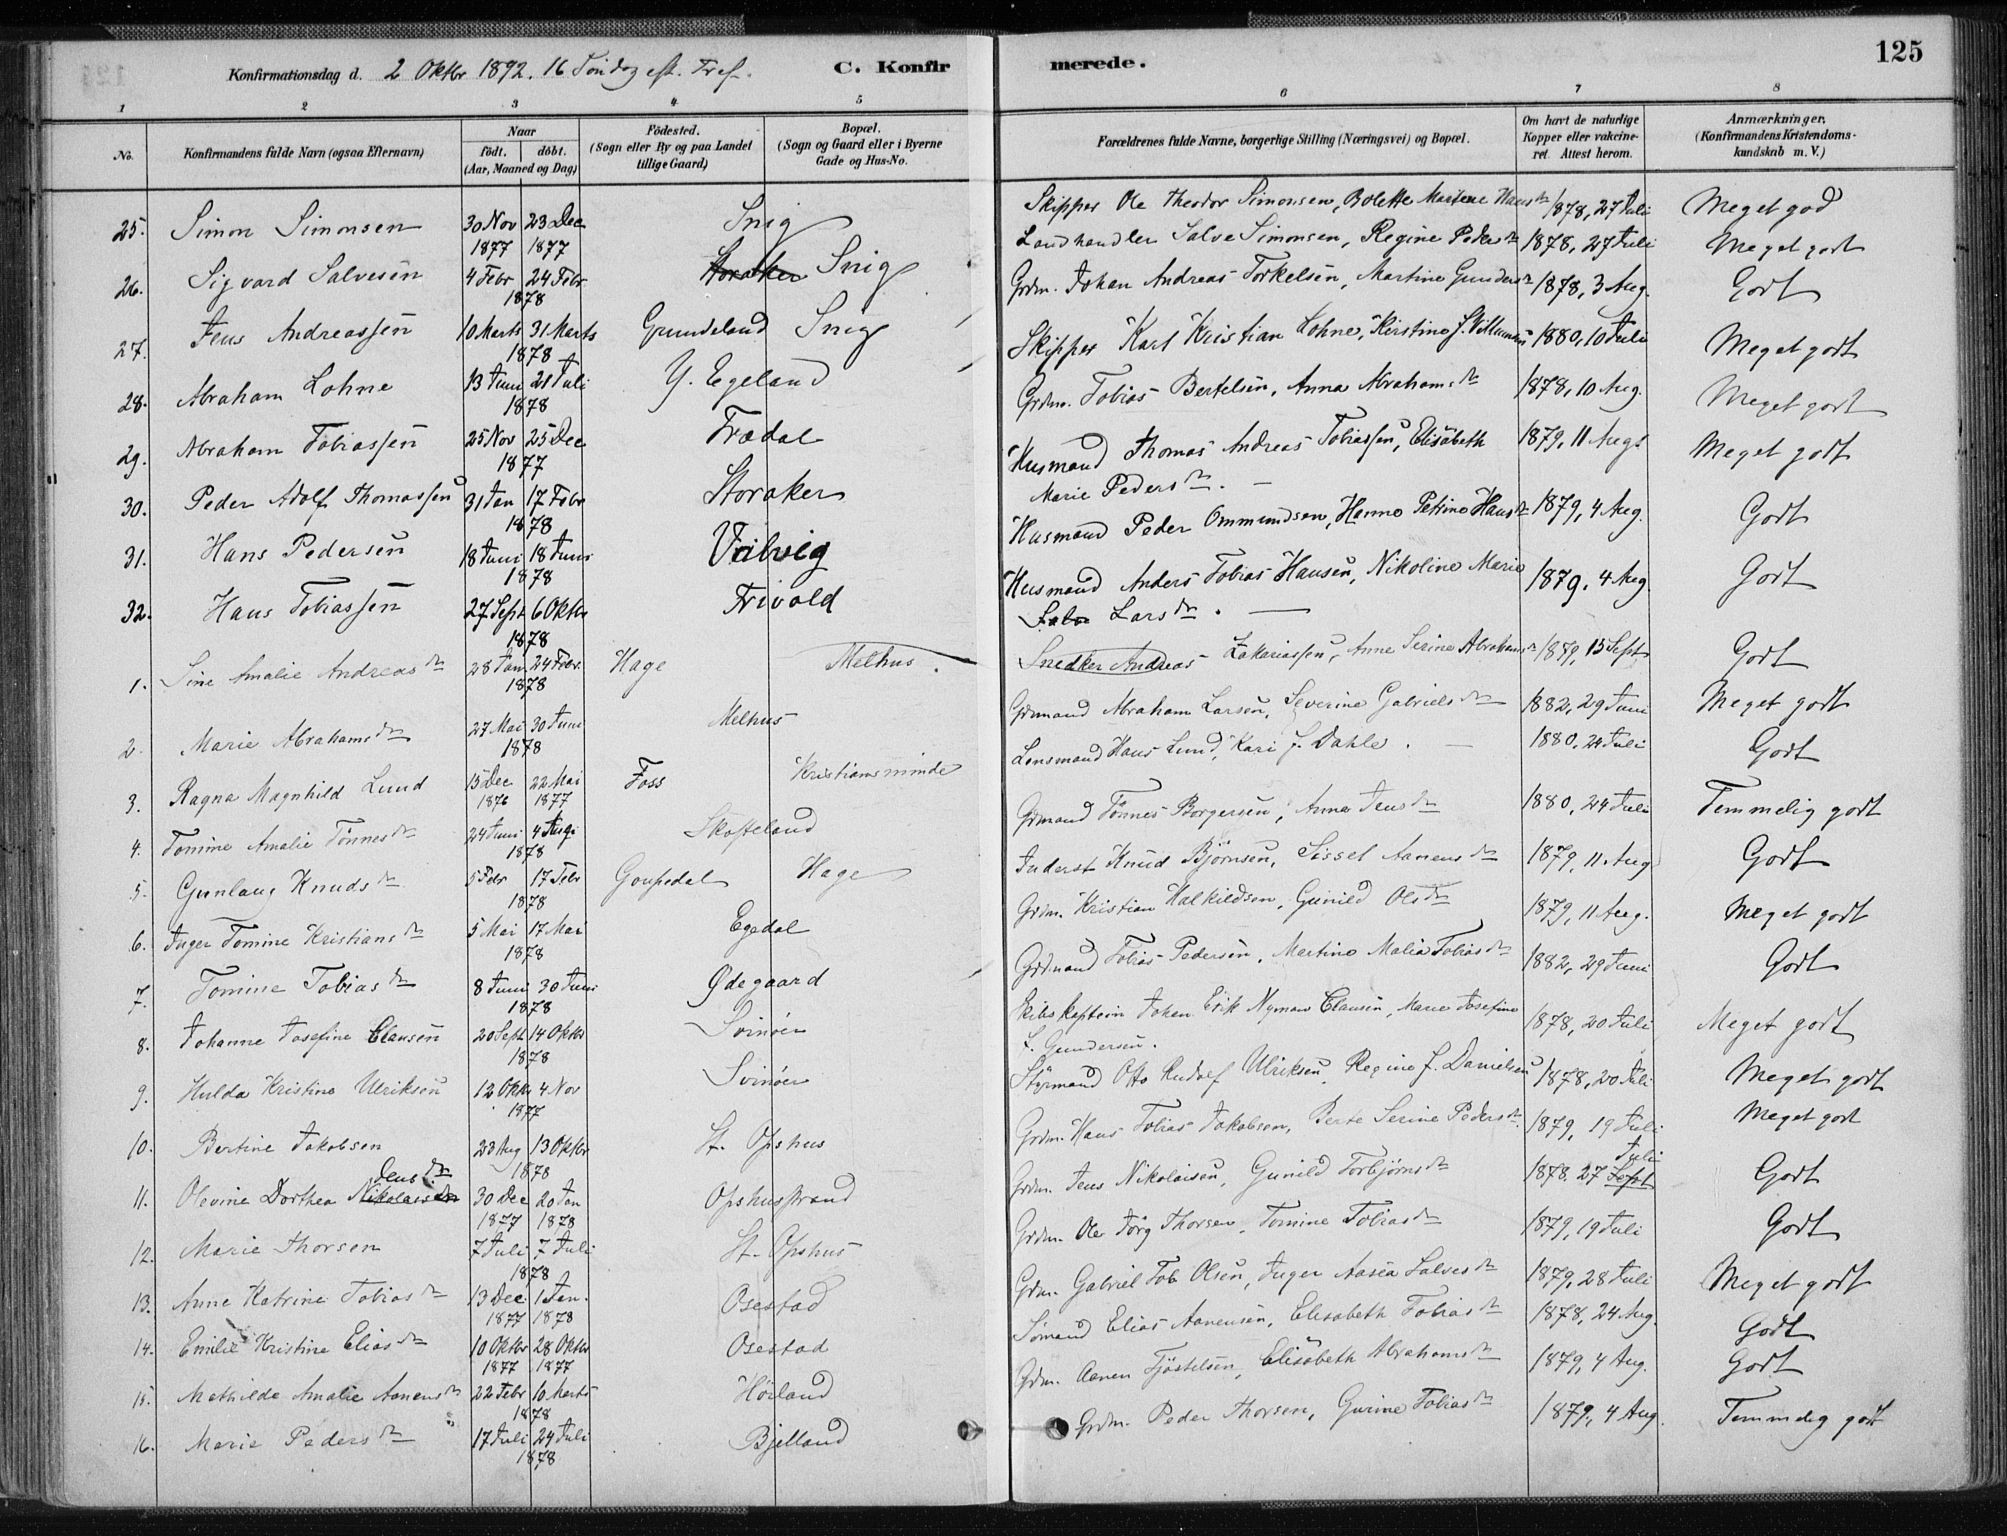 125
Konfirmationsdag d. 2 Oktbr 1892. 16 Søndag eft. Tref. C. Konfirmerede.
1 2 3 4 5 6 7 8
No. Konfirmandens fulde Navn (ogsaa Efternavn) Naar födt. döbt. (Aar, Maaned og Dag) Födested. (Sogn eller By og paa Landet tillige Gaard) Bopæl. (Sogn og Gaard eller i Byerne Gade og Hus-No.) Forældrenes fulde Navne, borgerlige Stilling (Næringsvei) og Bopæl. Om havt de naturlige Kopper eller vakcineret. Attest herom. Anmærkninger. (Konfirmandens Kristendomskundskab m. V.)
25. Simon Simonsen 30 Nov 1877 23 Dec 1877 Snig Skipper Ole Theodor Simonsen, Bolette Marlene Hansdtr 1878, 27 Juli Meget god
26. Sigvard Salvesen 4 Febr 24 Febr 1878 Storaker Snig Landhandler Salve Simonsen, Regine Pedersdtr 1878, 27 Juli Meget godt
27. Jens Andreassen 10 Marts 31 Marts 1878 Grundeland Snig Grdm. Johan Andreas Torkelsen, Martine Gundersdtr 1878, 3 Aug. Godt
28. Abraham Lohne 13 Juni 21 Juli 1878 Y. Egeland Skipper Karl Kristian Lohne, Kirstine f. Willumsen 1880, 10 Juli Meget godt
29. Abraham Tobiassen 25 Nov 25 Dec 1877 Trædal Grdm. Tobias Bertelsen, Anna Abrahamsdtr 1878, 10 Aug. Meget godt
30. Peder Adolf Thomassen 31 Jan 17 Febr 1878 Storaker Husmand Thomas Andreas Tobiassen, Elisabeth Marie Pedersdtr. 1879, 11 Augs Meget godt
31. Hans Pedersen 18 Juni 18 Juni 1878 Valvig Husmand Peder Ommundsen, Hanne Petrine Hansdtr 1879, 4 Aug. Godt
32. Hans Tobiassen 27 Sept 6 Oktbr 1878 Trivold Husmand Anders Tobias Hansen, Nikoline Marie Larsdtr. 1879, 4 Aug Godt
1. Sine Amalie Andreasdtr 28 Jan 24 Febr. 1878 Hage Melhus. Snedker Andreas Zakariassen, Anne Serine Abrahamsdtr 1879, 15 Sept Godt
2. Marie Abrahamsdtr 27 Mai 30 Juni 1878 Melhus Grdmand Abraham Larsen, Severine Gabrielsdtr 1882, 29 Juni Meget godt
3. Ragna Magnhild Lund 15 Dec 1876 22 Mai 1877 Foss Kristiansminde Lensmand Hans Lund, Kari f. Dahle. 1880, 24 Juli Godt
4. Tomine Amalie Tönnesdtr 24 Juni 4 Aug 1878 Skofteland Grdmand Tönnes Borgersen, Anna Jensdtr 1880, 24 Juli Temmelig godt
5. Gunlaug Knudsdtr 5 Febr 17 Febr 1878 Goupedal Hage Inderst Knud Björnsen, Sissel Aanensdtr 1879, 11 Aug Godt
6. Inger Tomine Kristiansdtr 5 Mai 17 Mai 1878 Egedal Grdm. Kristian Halkildsen, Gunild Olsdtr 1879, 11 Aug. Meget godt
7. Tomine Tobiasdtr 8 Juni 30 Juni 1878 Ødegaard Grdmand Tobias Pedersen, Martine Malia Tobiasdtr 1882, 29 Juni Godt
8. Johanne Josefine Clausen 20 Sept 14 Oktbr 1878 Svinöer Skibskaptein Johan Erik Nyman Clausen, Marie Josefine f. Gundersen. 1878, 20 Juli Meget godt
9. Hulda Kristine Ulriksen 12 Oktbr 4 Nov 1877 Svinöer Styrmand Otto Rudolf Ulriksen, Regine f. Danielsen 1878, 20 Juli Meget godt
10. Bertine Jakobsen 23 Aug 13 Oktbr 1878 St. Opshus Grdm. Hans Tobias Jakobsen, Berte Serine Pedersdtr. 1879, 19 Juli Meget godt
11. Olevine Dorthea Nikolaisdtr Jensdtr 30 Dec 1877 20 Jan 1878 Opshusstrand Grdm. Jens Nikolaisen, Gunild Torbjörnsdtr 1878, 27 Sept Juli Godt
12. Marie Thorsen 7 Juli 7 Juli 1878 St. Opshus Grdm. Ole Jörg Thorsen, Tomine Tobiasdtr 1879, 19 Juli Godt
13. Anne Katrine Tobiasdtr 13 Dec 1877 1 Jan. 1878 Osestad Grdm. Gabriel Tob. Olsen, Inger Aasea Salvesdtr 1879, 28 Juli Meget godt
14. Emilie Kristine Eliasdtr 10 Oktbr 1877 28 Oktbr 1877 Osestad Sömand Elias Aanensen, Elisabeth Tobiasdtr 1878, 24 Aug. Godt
15. Mathilde Amalie Aanensdtr 22 Febr 10 Marts 1878 Hörland Grdm. Aanen Fjöstelsen, Elisabeth Abrahamsdtr 1879, 4 Aug. Godt
16. Marie Pedersdtr 17 Juli 24 Juli 1878 Bjelland Grdm. Peder Thorsen, Gurine Tobiasdtr 1879, 4 Aug. Temmelig godt